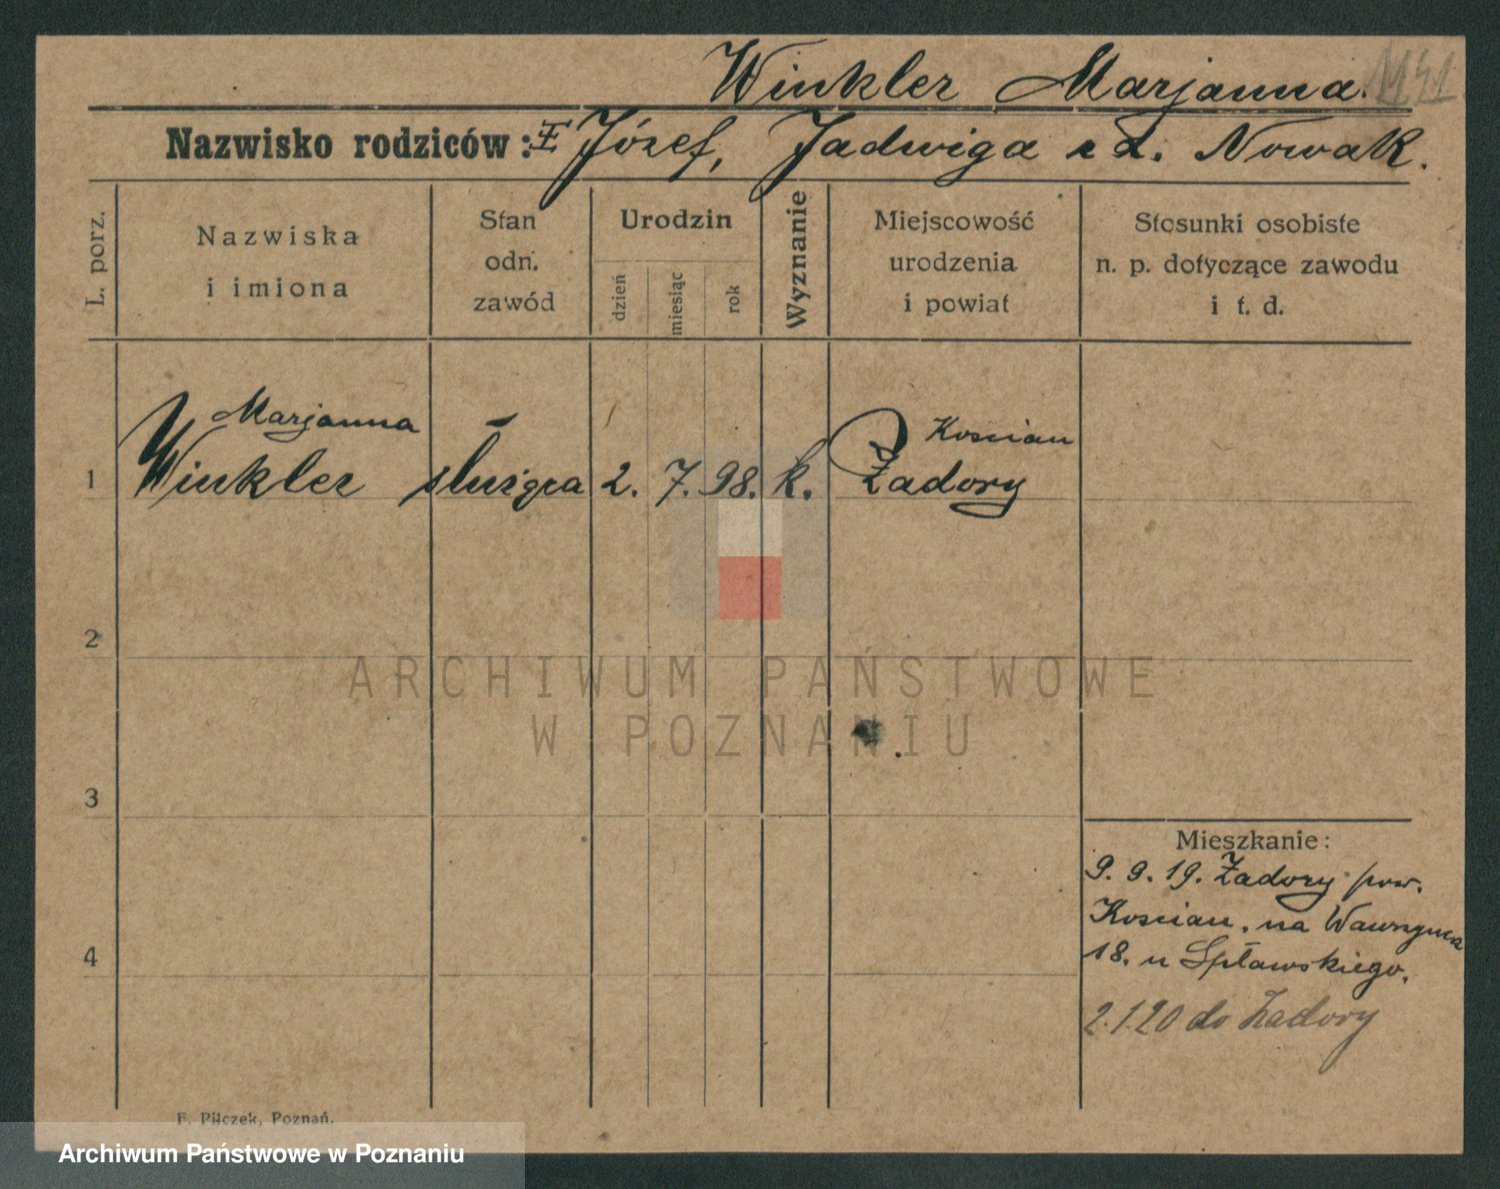 Winkler Marjanna. 1141
Nazwisko rodziców: Józef, Jadwiga z d. Nowak.
L. porz.
Nazwiska
i imiona
Stan
odn.
zawód
Urodzin
dzień
miesiąc
rok
Wyznanie
Miejscowość
urodzenia
i powiat
Stosunki osobiste
n. p. dotyczące zawodu
i t. d.
Marjanna Koscian
1 Winkler służąca 2. 7. 98. k. Żadory
2
3
4
Mieszkanie:
9. 9. 19. Żadory pow.
Koscian, na Wawrzynca
18. u Spławskiego.
2.1.20 do Żadory
F. Pilczek, Poznań.
ARCHIWUM PAŃSTWOWE
W POZNANIU
Archiwum Państwowe w Poznaniu